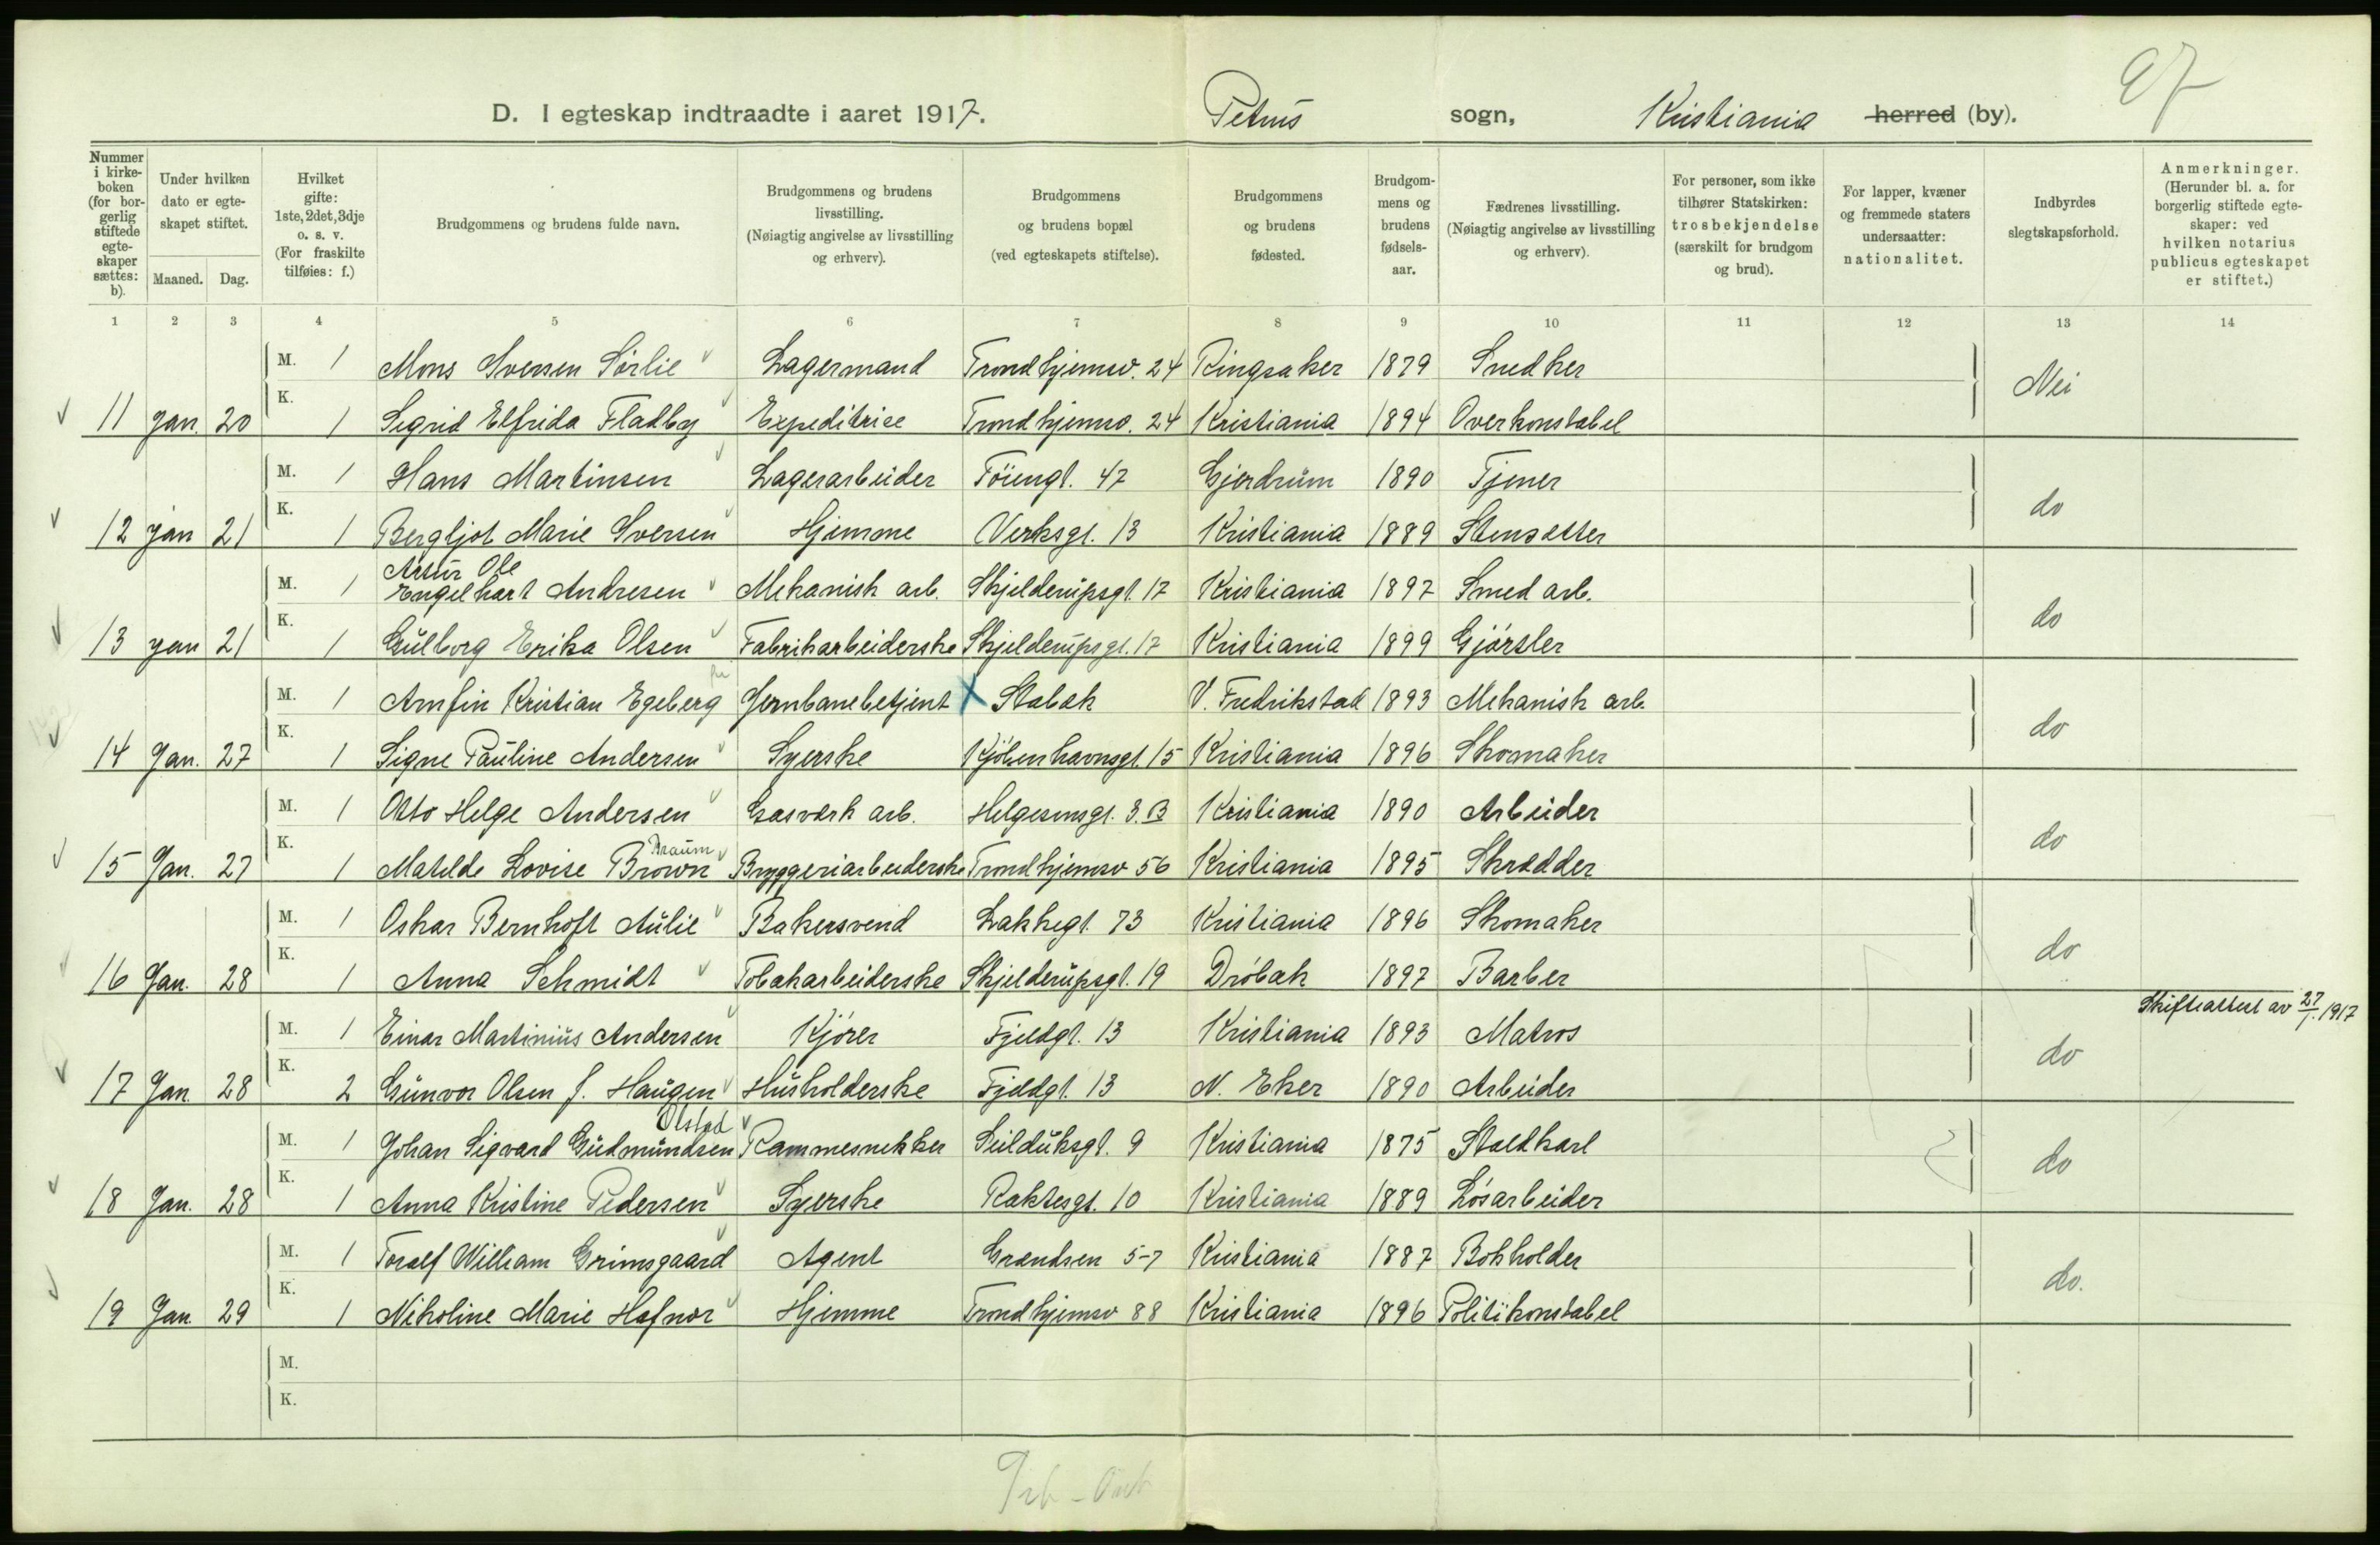 97
D. I egteskap indtraadte i aaret 1917. Petrus sogn, Kristiania herred (by).
Nummer i kirkeboken (for borgerlig stiftede egteskaper sættes: b). Under hvilken dato er egteskapet stiftet. Maaned. Dag. Hvilket gifte: 1ste, 2det, 3dje o. s. v. (For fraskilte tilføies: f.) Brudgommens og brudens fulde navn. Brudgommens og brudens livsstilling. (Nøiagtig angivelse av livsstilling og erhverv). Brudgommens og brudens bopæl (ved egteskapets stiftelse). Brudgommens og brudens fødested. Brudgommens og brudens fødselsaar. Fædrenes livsstilling. (Nøiagtig angivelse av livsstilling og erhverv). For personer, som ikke tilhører Statskirken: trosbekjendelse (særskilt for brudgom og brud). For lapper, kvæner og fremmede staters undersaatter: nationalitet. Indbyrdes slegtskapsforhold. Anmerkninger. (Herunder bl. a. for borgerlig stiftede egteskaper: ved hvilken notarius publicus egteskapet er stiftet.)
1 2 3 4 5 6 7 8 9 10 11 12 13 14
M. 1 Mons Iversen Sörlie Lagermand Trondhjemsv. 24 Ringsaker 1879 Snedker Nei
11 Jan. 20 K. 1 Sigrid Elfrida Fladby Expeditrice Trondhjemsv. 24 Kristiania 1894 Overkonstabel
M. 1 Hans Martinsen Lagerarbeider Töiengt. 47 Gjerdrum 1890 Tjener do
12 Jan 21 K. 1 Bergljot Marie Iversen Hjemme Verksgt. 13 Kristiania 1889 Stensætter
Artur Ole
M. 1 Engelhart Andresen Mekanisk arb. Skjelderupsgt. 17 Kristiania 1897 Smed arb. do
13 Jan 21 K. 1 Gulborg Erika Olsen Fabrikarbeiderske Skjelderupsgt. 17 Kristiania 1899 Gjørtler
M. 1 Arnfin Kristian Egeberg Jernbanebetjent X Stabæk V. Fredrikstad 1893 Mekanisk arb. do
14 Jan. 27 K. 1 Signe Pauline Andersen Syerske Kjöbenhavnsgt. 15 Kristiania 1896 Skomaker
M. 1 Otto Helge Andersen Gasværk arb. Helgesensgt. 3.B Kristiania 1890 Arbeider do
Braum
15 Jan. 27 K. 1 Matilde Lovise Brown Bryggeriarbeiderske Trondhjemsv 56 Kristiania 1895 Skrædder
M. 1 Oskar Bernhoft Aulie Bakersvend Lakkegt. 73 Kristiania 1896 Skomaker do
16 Jan. 28 K. 1 Anna Schmidt Tobakarbeiderske Skjelderupsgt. 19 Dröbak 1897 Barber
Skifteattest av 27/1. 1917
M. 1 Einar Martinius Andersen Kjörer Fjeldgt. 13 Kristiania 1893 Matros do
17 Jan. 28 K. 2 Gunvor Olsen f. Haugen Husholderske Fjeldgt. 13 N. Eker 1890 Arbeider
Olstad
M. 1 Johan Sigvard Gudmundsen Rammesnekker Seilduksgt. 9 Kristiania 1875 Staldkarl do
18 Jan. 28 K. 1 Anna Kristine Pedersen Syerske Rathesgt. 10 Kristiania 1889 Lösarbeider
M. 1 Toralf William Grimsgaard Agent Grændsen 5-7 Kristiania 1887 Bokholder do.
19 Jan 29 K. 1 Nikoline Marie Hafnor Hjemme Trondhjemsv 88 Kristiania 1896 Politikonstabel
M.
K.